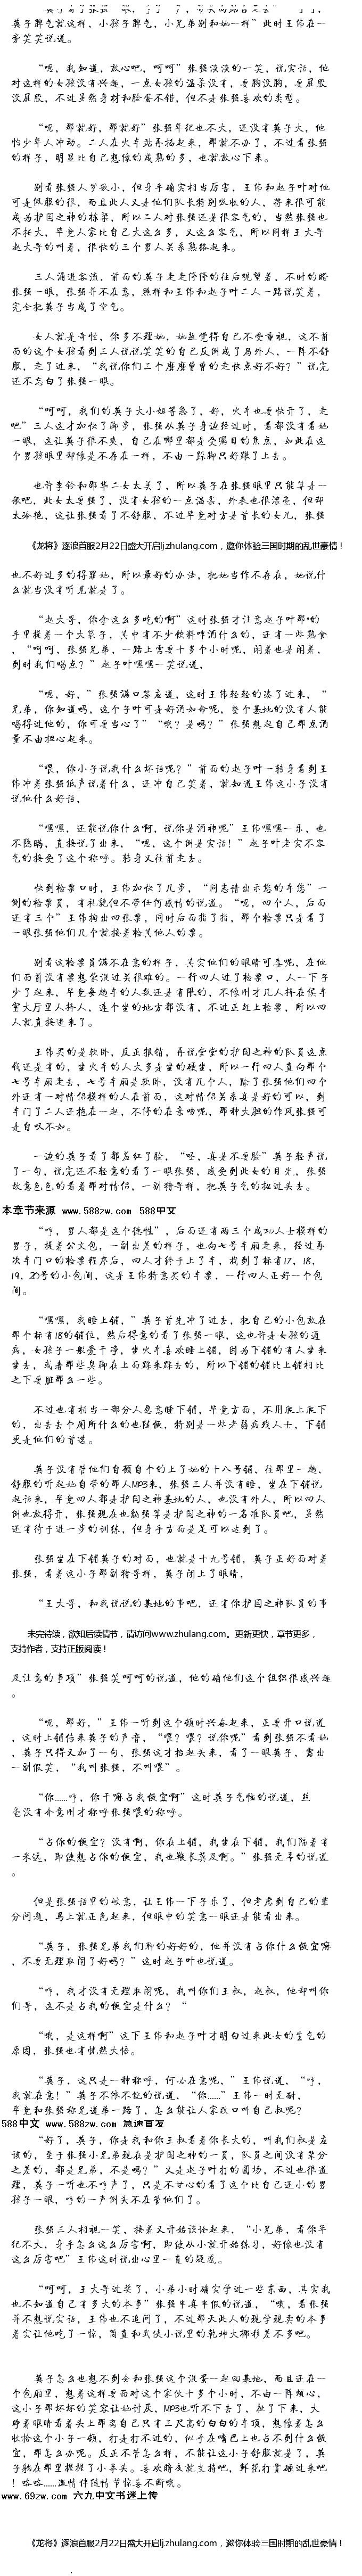 英子脾气就这样，小孩子脾气，小兄弟别和她一样”此时王伟在一
旁笑笑说道。
“嗯，我知道，放心吧，呵呵”张强淡淡的一笑，说实话，他
对这样的女孩没有兴趣，一点女孩的温柔没有，要胸没胸，要屁股
没屁股，不过虽然身材和脸蛋不错，但不是张强喜欢的类型。
“嗯，那就好，那就好”张强年纪也不大，还没有英子大，他
怕少年人冲动。二人在火车站再掐起来，那就不办了，不过看张强
的样子，明显比自己想像的成熟的多，也就放心下来。
别看张强人岁数小，但身手确实相当厉害，王伟和赵子叶对他
可是佩服的很，而且此人又是他们队长特别吸收的人，将来很可能
成为护国之神的栋梁，所以二人对张强还是很客气的，当然张强也
不托大，毕竟人家比自己大这么多，又这么客气，所以同样王大哥
赵大哥的叫着，很快的三个男人关系熟络起来。
三人涌进客流，前面的英子走走停停的往后观望着，不时的瞪
张强一眼，张强并不在意，照样和王伟和赵子叶二人一路说笑着，
完全把英子当成了空气。
女人就是奇怪，你多不理她，她越觉得自己不受重视，这不前
面的这个女孩看到三人说说笑笑的自己反倒成了局外人，一阵不舒
服，走了过来，“我说你们三个磨磨蹭蹭的走快点好不好？”说完
还不忘白了张强一眼。
“呵呵，我们的英子大小姐等急了，好，火车也要快开了，走
吧”三人这才加快了脚步，张强从英子身边经过时，看都没有看她
一眼，这让英子很不爽，自己在哪里都是受瞩目的焦点，如此在这
个男孩眼里却像是不存在一样，不由一跺脚只好跟了上去。
《龙将》逐浪首服2月22日盛大开启lj.zhulang.com，邀你体验三国时期的乱世豪情！
也不好过多的得罪她，所以最好的办法，把她当作不存在，她说什
么就当没有听见就是了。
“赵大哥，你拿这么多吃的啊”这时张强才注意赵子叶那的
手里提着一个大袋子，其中有不少饮料啤酒什么的，还有一些熟食
，“呵呵，张强兄弟，一路上需要十多个小时呢，闲着也是闲着，
到时我们喝点？”赵子叶嘿嘿一笑说道，
“嗯，好，”张强满口答应道，这时王伟轻轻的凑了过来，“
兄弟，你知道吗，这个子叶可是好酒如命呢，整个基地的没有人能
喝得过他的，你可要当心了”“哦？是吗？”张强想起自己那点酒
量不由担心起来。
“喂，你小子说我什么坏话呢？”前面的赵子叶一转身看到王
伟冲着张强低声说着什么，还冲自己笑着，就知道王伟这小子没有
说他什么好话，
“嘿嘿，还能说你什么啊，说你是酒神呢”王伟嘿嘿一乐，也
不隐瞒，直接说了出来，“嗯，这个倒是实话！”赵子叶老实不客
气的接受了这个称呼。转身又往前走去。
快到检票口时，王伟加快了几步，“同志请出示您的车您”一
侧的检票员，有礼貌但不带任何感情的说道。“嗯，四个人，后面
还有三个”王伟掏出四张票，同时后面指了指，那个检票只是看了
一眼张强他们几个就接着检其他人的票。
别看这检票员满不在意的样子，其实他们的眼睛可毒呢，在他
们面前没有票想蒙混过关很难的。一行四人过了检票口，人一下子
少了起来，毕竟要赶车的人数还是有限的，不像刚才几人挤在候车
室大厅里人挤人，连个坐的地方都没有，不过正赶上检票，所以四
人就直接进来了。
王伟买的是软卧，反正报销，再说堂堂的护国之神的队员这点
钱还是有的，坐火车的人大多是坐的硬坐，所以一行四人直向那个
七号车厢走去，七号车厢是软卧，没有几个人，除了张强他们四个
外还有一对情侣模样的人在前面，这对情侣关系真是好的可以，到
车门了二人还抱在一起，不停的在亲吻呢，那种大胆的作风张强可
是自叹不如。
一边的英子看了都羞红了脸，“呸，真是不要脸”英子轻声说
了一句，说完还不轻意的看了一眼张强，感受到此女的目光，张强
故意色色的看着那对情侣，一副猪哥样，把英子气的扭过头去。
本章节来源 www.588zw.com 588中文
“哼，男人都是这个德性”，后面还有两三个成功人士模样的
男子，提着公文包，一副出差的样子，也向七号车厢走来，经过再
次车门口的检票程序后，四人才终于上了车，找到了标有17，18，
19，20号的小包间，这是王伟特意买的车票，一行四人正好一个包
间。
“嘿嘿，我睡上铺，”英子首先冲了过去，把自己的小包放在
那个标有18的铺位，然后得意的看了张强一眼，这也许是女孩的通
病，女孩子一般爱干净，坐火车喜欢睡上铺，因为下铺的有人坐来
坐去，或者那些臭脚在上面踩来踩去的，所以下铺的铺比上铺相比
之下要脏那么一些。
不过也有相当一部分人愿意睡下铺，毕竟方面，不用爬上爬下
的，出去去个厕所什么的也随便，特别是一些老弱病残人士，下铺
更是他们的首选。
英子没有管他们自顾自个的上了她的十八号铺，往那里一趟，
舒服的听起她自带的那人MP3来，张强三人并没有睡，坐在下铺说
起话来，毕竟四人都是护国之神基地的人，也没有外人，所以四人
倒也放得开，张强现在也勉强算是护国之神的一名准队员吧，虽然
还有待于进一步的训练，但身手方面是足可以达到了。
张强坐在下铺英子的对面，也就是十九号铺，英子正好面对着
张强，看着这小子那副猪哥样，英子闭上了眼睛，
“王大哥，和我说说的基地的事吧，还有你护国之神队员的事
未完待续，欲知后续情节，请访问www.zhulang.com。更新更快，章节更多，
支持作者，支持正版阅读！
及注意的事项”张强笑呵呵的说道，他的确他们这个组织很感兴趣
。
“嗯，那好，”王伟一听到这个顿时兴奋起来，正要开口说道
，这时上铺传来英子的声音，“喂？喂？说你呢”看到张强不看她
，英子只得又加了一句，张强这才抬起头来，看了一眼英子，露出
一副假笑，“我叫张强，不叫喂”。
“你……哼，你干嘛占我便宜啊”这时英子气恼的说道，丝
毫没有介意刚才称呼张强喂的称呼。
“占你的便宜？没有啊，你在上铺，我坐在下铺，我们隔着有
一米远，即使想占你的便宜，我也鞭长莫及啊。”张强无辜的说道
。
但是张强话里的歧意，让王伟一下子乐了，但考虑到自己的辈
分问题，马上就正色起来，但眼中的笑意一眼还是能看出来。
“英子，张强兄弟我们聊的好好的，他并没有占你什么便宜嘛
，不要无理取闹了好吗？”这时赵子叶也说道。
“哼，我才没有无理取闹呢，我叫你们王叔，赵叔，他却叫你
们哥，这不是占我的便宜是什么？”
“哦，是这样啊”这下王伟和赵子叶才明白过来此女的生气的
原因，张强也有恍然大悟。
“英子，这只是一种称呼，何必在意呢，”王伟说道，“哼，
我就在意！”英子不依不饶的说道，“你……”王伟一时无耐，
毕竟和张强称兄道弟一路了，怎么能让人家改口叫自己叔呢？
588中文 www.588zw.com 急速首发
“好了，英子，你是我和你王叔看着你长大的，叫我们叔是应
该的，至于张强小兄弟现在是护国之神的一员，队员之间没有辈分
之差的，都是兄弟，不是吗？”又是赵子叶打的圆场，不过也很道
理，英子一听也不哼声了，只是不甘心的看了这个比自己还小的男
孩子一眼，哼的一声倒头不在管他们了。
张强三人相视一笑，接着又开始谈论起来，“小兄弟，看你年
纪不大，身手怎么这么厉害啊，即使从小就开始练习，好像也没有
这么厉害吧”王伟这时说出心里一直的疑惑。
“呵呵，王大哥过奖了，小弟小时确实学过一些东西，其实我
也不知道自己有多大的本事”张强半真半假的说道，“哦，看张强
并不想说实话，王伟也不追问了，不过那天此人的现学现卖的本事
着实让他吃了一惊，简直和武侠小说里的乾坤大挪移差不多吧。
英子怎么也想不到会和张强这个混蛋一起回基地，而且还在一
个包厢里，想着这样要面对这个家伙十多个小时，不由一阵烦心，
这小子那坏坏的笑容让她讨厌，MP3也听不下去了，扯了下来，大
睁着眼睛看着头上那离自己只有三尺高的白白的车顶，想像着怎么
收拾这个小子一顿，打是打不过的，似乎在嘴巴上也占不到什么便
宜，那怎么办呢。反正不管怎么样，不能让这小子舒服就是了，英
子躺在那里握握了小拳头。喜欢胖衣就支持吧，鲜花打赏砸过来吧
！咯咯……激情伴随情节惊喜不断哦。
www.69zw.com 六九中文书迷上传
《龙将》逐浪首服2月22日盛大开启lj.zhulang.com，邀你体验三国时期的乱世豪情！